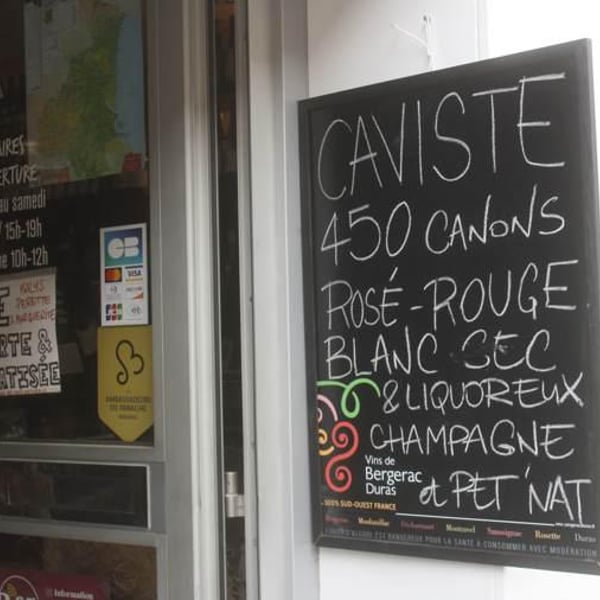 CAVISTE
450 CANONS
ROSÉ-ROUGE
BLANC SEC
& LIQUOREUX
CHAMPAGNE
et PET'NAT
Vins de
Bergerac
Duras
100% SUD-OUEST FRANCE
Bergerac Monbazillac Pécharmant Montravel Saussignac Rosette Duras
L'ABUS D'ALCOOL EST DANGEREUX POUR LA SANTÉ À CONSOMMER AVEC MODÉRATION
AIRES
ERTURE
au samedi
/ 15h-19h
he 10h-12h
E
RTE &
ATISÉE
CB
VISA
JCB
AMBASSADEURS
DU PANACHE
Information